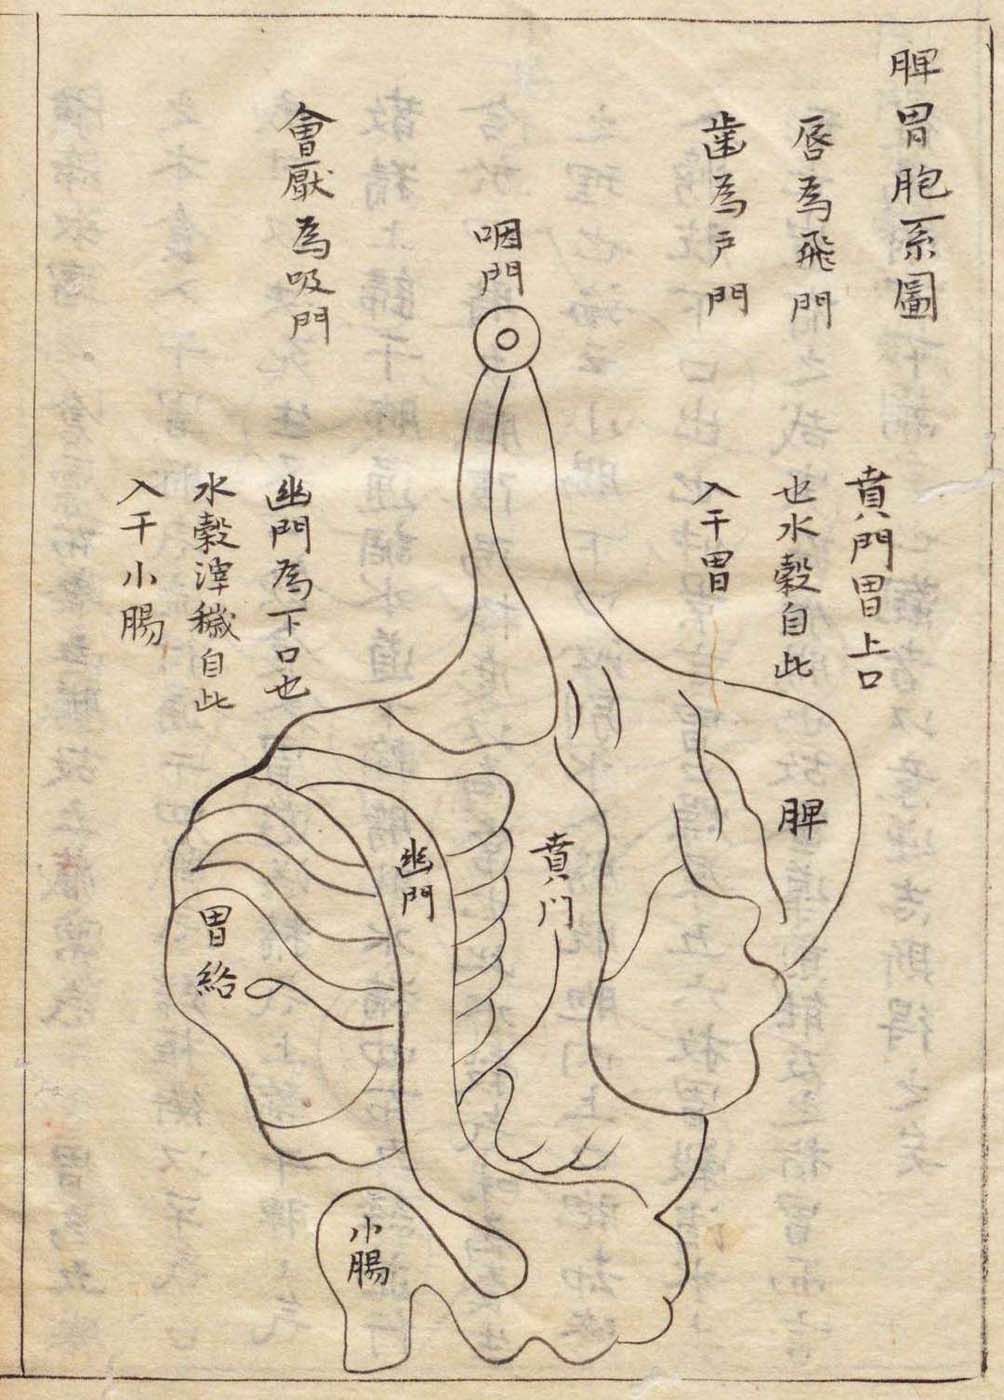 脾胃胞系圖
唇為飛門
齒為戶門
咽門
會厭為吸門
賁門胃上口
也水穀自此
入于胃
幽門為下口也
水穀滓穢自此
入于小腸
脾
賁门
幽門
胃
給
小腸